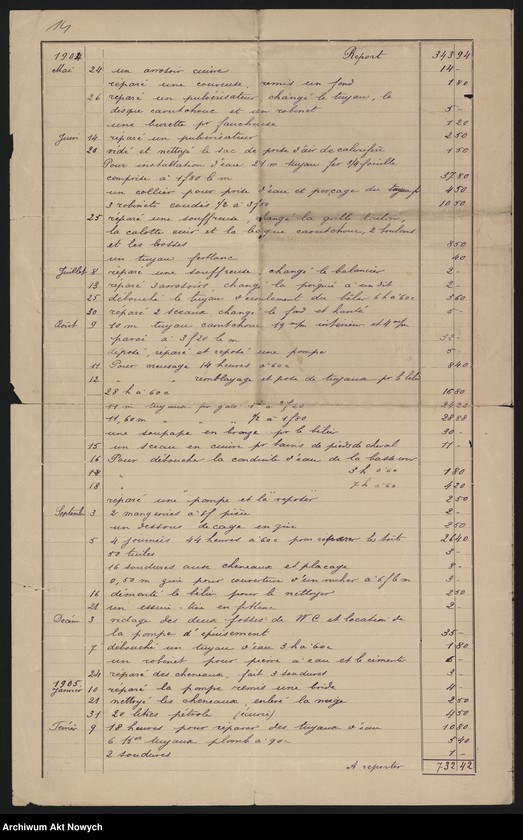 14
1904 Report 343 94
Mai 24 un arrosoir cuivre 14 -
reparé une couveuse, remis un fond 1 80
26 reparé un pulvérisateur changé le tuyau, le
disque caoutchouc et un robinet 5 -
une burette pr faucheuse 1 20
Juin 14 reparé un pulvérisateur 2 50
20 vidé et nettoyé le sac de porte d'air de calorifère 1 50
Pour installation d'eau 21 m tuyau fer 3/4 fouille
comprise à 1f80 le m 37 80
un collier pour prise d'eau et perçage du tuyau 4 50
3 robinets coudés 1/2 à 3f50 10 50
25 réparé une souffreuse, changé la grille laiton,
la calotte cuir et la bague caoutchouc, 2 boulons
et les bosses 8 50
un tuyau ferblanc 40
Juillet 8 réparé une souffreuse, changé le balancier 2 -
13 reparé 3 arrosoirs, changé la poignée à un dit 2 -
25 débouché le tuyau d'écoulement du bélier 6 h à 60 c 3 60
30 reparé 2 sceaux, changé le fond et 5 -
Août 9 10 m tuyau caoutchouc 19 m/m intérieur et 4 m/m
paroi à 3f20 le m 32 -
déposé, réparé et reposé une pompe 5 -
11 Pour 14 heures à 60 c 8 40
12 " " remblayage et pose de tuyaux pr le bélier
28 h à 60 c 16 80
11 m tuyaux fer galv.
11,60 m " " " 28 88
une soupape en bronze pr le bélier 30 -
15 un sceau en cuivre pr bains de pieds de cheval 11 -
16 Pour débouche la conduite d'eau de la basse cour
18 " 3 h à 60 1 80
18 " 7 h à 60 4 20
reparé une pompe et la reposer 2 50
Septembre 3 2 mangeoires à 1f pièce 2 -
un dessous de cage en zinc 2 50
5 4 journées 44 heures à 60 c pour reparer le toit 26 40
50 tuiles 3 -
16 soudures aux cheneaux et placage 8 -
0,50 m zinc pour couverture d'un rucher à 6f le m 3 -
16 démonté le bélier pour le nettoyer 2 50
21 un essuie-lie en ferblanc 2 -
Décem 3 vidage des deux fosses de WC et location de
la pompe d'épuisement 35 -
7 débouché un tuyau d'eau 3 h à 60 c 1 80
un robinet pour pierre à eau et le cimenter 6 -
24 reparé des cheneaux, fait 3 soudures 3 -
1905
Janvier 10 reparé la pompe remis une bride 4 -
21 nettoyé les cheneaux enlevé la neige 2 50
31 20 litres pétrole (écurie) 4 50
Février 9 18 heures pour réparer des tuyaux d'eau 10 80
6 kos tuyaux plomb à 90 c 5 40
2 soudures 1 -
A reporter 732 42
Archiwum Akt Nowych